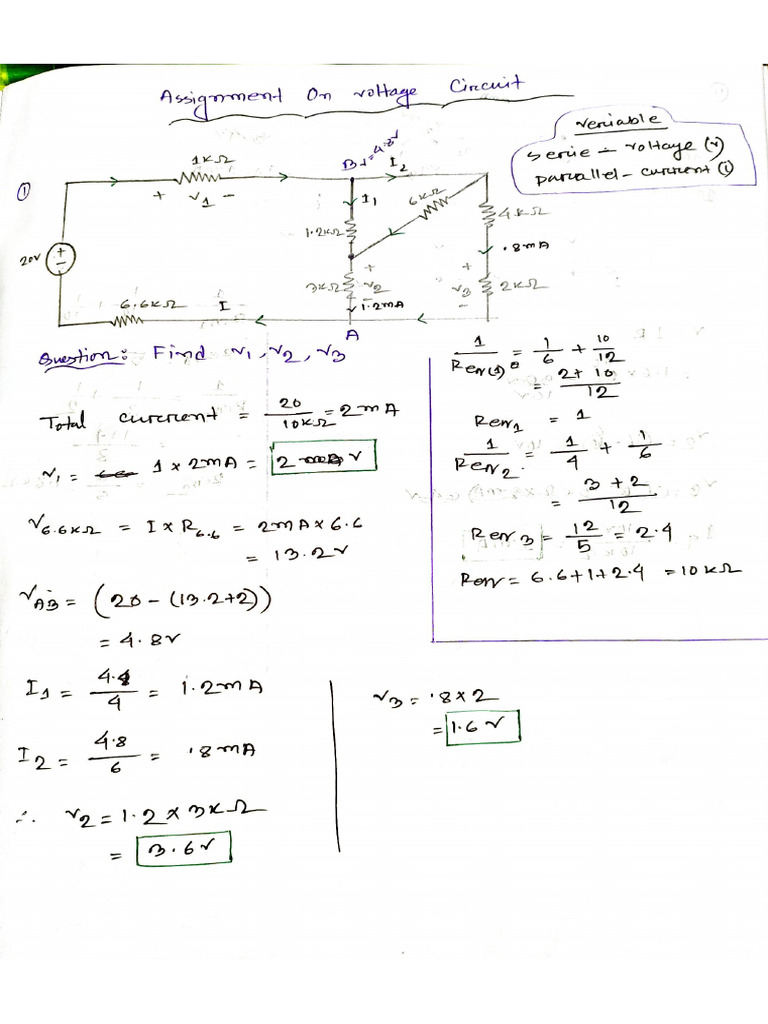 Assignment On voltage Circuit
veriable
serie - voltage (v)
parallel - current (i)
①
1kΩ
+ v1 -
B += 4.8v
I2
I1
6kΩ
1.2kΩ
4kΩ
.8mA
20v
+
-
3kΩ
+
v2
-
1.2mA
+
v3
-
2kΩ
6.6kΩ
I
A
Question: Find v1, v2, v3
Total current = 20/10kΩ = 2mA
v1 = 1 × 2mA = 2 v
v6.6kΩ = I × R6.6 = 2mA × 6.6
= 13.2v
vAB = (20 - (13.2+2))
= 4.8v
I1 = 4.8/4 = 1.2mA
I2 = 4.8/6 = .8mA
∴ v2 = 1.2 × 3kΩ
= 3.6v
1/Rew(1) = 1/6 + 10/12
= 2+10/12
Rew1 = 1
1/Rew2 = 1/4 + 1/6
= 3+2/12
Rew3 = 12/5 = 2.4
Rew = 6.6+1+2.4 = 10kΩ
v3 = .8 × 2
= 1.6v